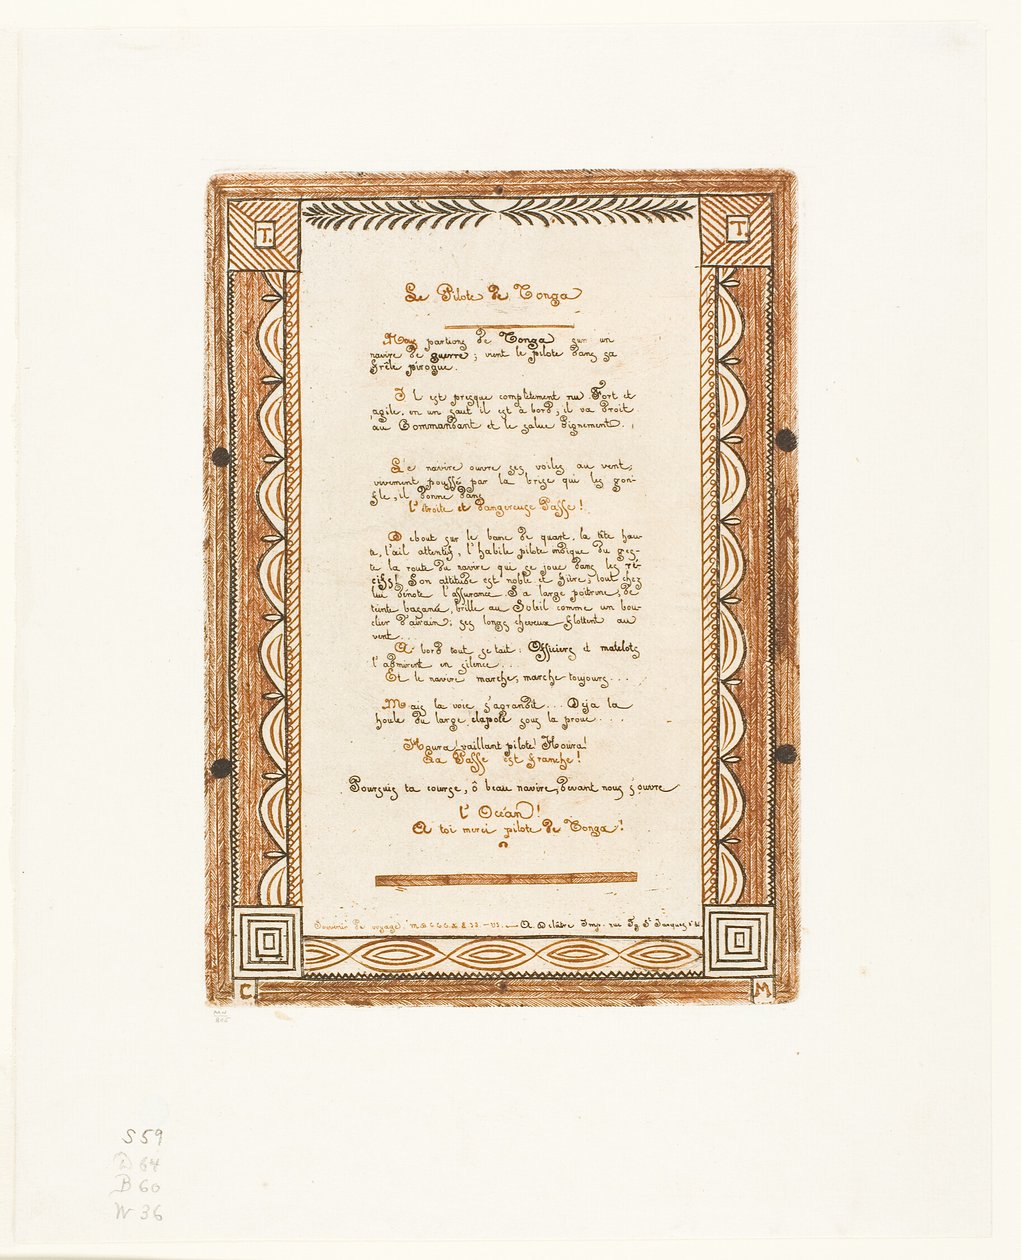 T. T.
Le Pilote de Tonga
Nous partions de Tonga sur un
navire de guerre ; vient le pilote dans sa
frêle pirogue.
Il est presque complètement nu. Fort et
agile, en un saut il est à bord, il va droit
au Commandant et le salue dignement.
Le navire ouvre ses voiles au vent,
vivement poussé par la brise qui les gon-
fle, il donne dans
l'étroite et dangereuse Passe !
Debout sur le banc de quart, la tête hau-
te, l'œil attentif, l'habile pilote indique du ges-
te la route du navire qui se joue dans les ré-
cifs! Son attitude est noble et fière; tout chez
lui dénote l'assurance. Sa large poitrine, de
teinte basanée, brille au Soleil comme un bou-
clier d'airain; ses longs cheveux flottent au
vent...
A bord tout se tait : Officiers et matelots
l'admirent en silence...
Et le navire marche, marche toujours...
Mais la voie s'agrandit... Déjà la
houle du large clapote sous la proue....
Houra! vaillant pilote! Houra!
La Passe est franche !
Poursuis ta course, ô beau navire, devant nous s'ouvre
l'Océan !
A toi merci pilote de Tonga !
Souvenir de voyage. A. Delâtre Imp. rue
C. M.
S 59
D 64
B 60
W 36